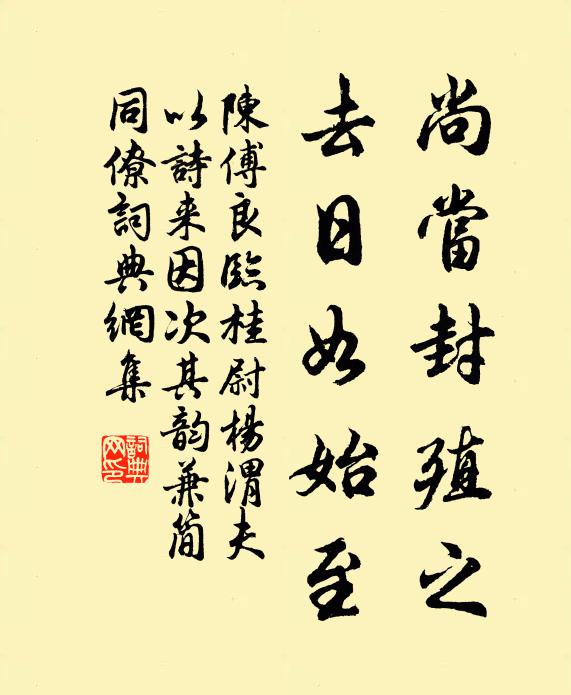 尚當封殖之
去日如始至
陳傅良臨桂尉楊渭夫
以詩来因次其韵兼简
同僚詞典網集
詞典网印